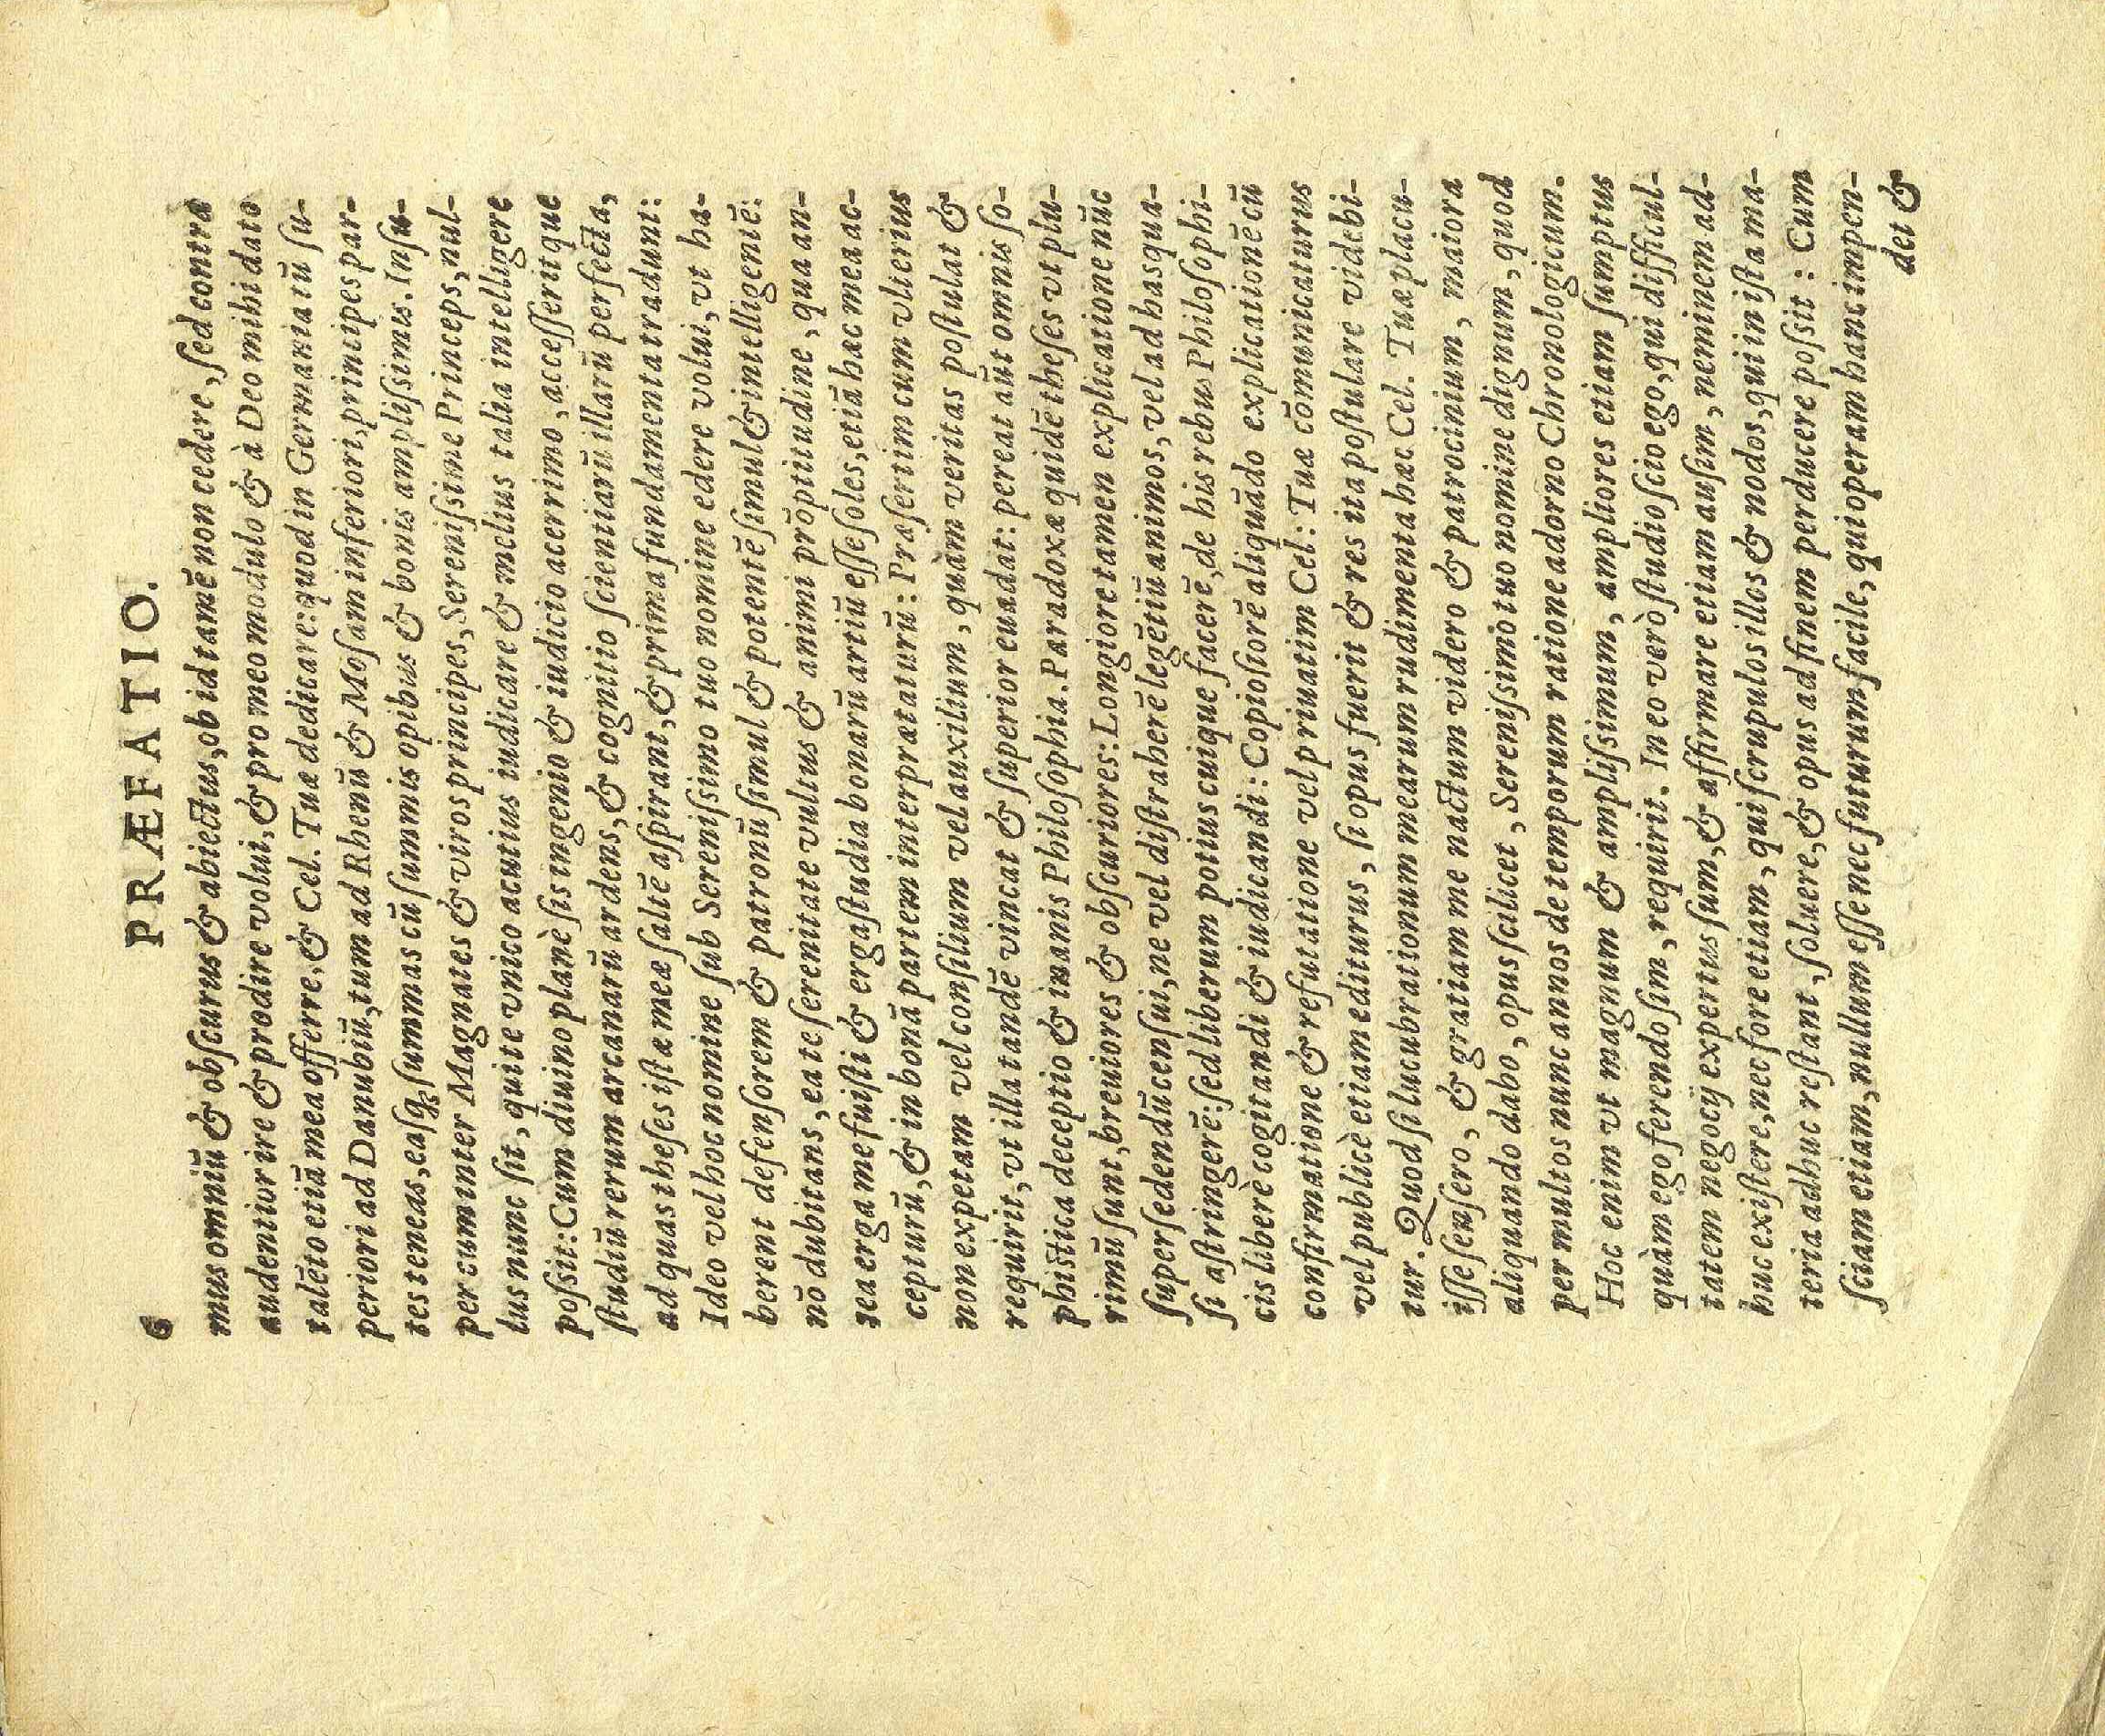 6 PRÆFATIO.
mus omniũ & obſcurus & abiectus, ob id tamẽ non cedere, ſed contra
audentior ire & prodire volui, & pro meo modulo & à Deo mihi dato
talẽto etiã mea offerre, & Cel. Tuæ dedicare: quod in Germania tũ ſu-
periori ad Danubiũ, tum ad Rhenũ & Moſam inferiori, principes par-
tes teneas, easq; ſummas cũ ſummis opibus & bonis ampliſsimis. Inſu-
per cum inter Magnates & viros principes, Sereniſsime Princeps, nul-
lus nunc ſit, qui te vnico acutius iudicare & melius talia intelligere
poſsit: Cum diuino planè ſis ingenio & iudicio acerrimo, acceſſeritque
ſtudiũ rerum arcanarũ ardens, & cognitio ſcientiarũ illarũ perfecta,
ad quas theſes iſtæ meæ ſaltẽ aſpirant, & prima fundamenta tradunt:
Ideo vel hoc nomine ſub Sereniſsimo tuo nomine edere volui, vt ha-
berent defenſorem & patronũ ſimul & potentẽ ſimul & intelligentẽ:
nõ dubitans, ea te ſerenitate vultus & animi prõptitudine, qua an-
tea erga me fuiſti & erga ſtudia bonarũ artiũ eſſe ſoles, etiã hæc mea ac-
cepturũ, & in bonã partem interprætaturũ: Præſertim cum vlterius
non expetam vel conſilium vel auxilium, quàm veritas poſtulat &
requirit, vt illa tandẽ vincat & ſuperior euadat: pereat aũt omnis ſo-
phistica deceptio & inanis Philoſophia. Paradoxæ quidẽ theſes vt plu-
rimũ ſunt, breuiores & obſcuriores: Longiore tamen explicatione nũc
ſuperſedendũ cenſui, ne vel diſtraherẽ legẽtiũ animos, vel ad has qua-
ſi aſtringerẽ: ſed liberum potius cuique facerẽ, de his rebus Philoſophi-
cis liberè cogitandi & iudicandi: Copioſiorẽ aliquãdo explicationẽ cũ
confirmatione & refutatione vel priuatim Cel: Tuæ cõmunicaturus
vel publicè etiam editurus, ſi opus fuerit & res ita poſtulare videbi-
tur. Quod ſi lucubrationum mearum rudimenta hæc Cel. Tuæ placu-
iſſe ſenſero, & gratiam me nactum videro & patrocinium, maiora
aliquando dabo, opus ſcilicet, Sereniſsimo tuo nomine dignum, quod
per multos nunc annos de temporum ratione adorno Chronologicum.
Hoc enim vt magnum & ampliſsimum, ampliores etiam ſumptus
quàm ego ferendo ſim, requirit. In eo verò ſtudio ſcio ego, qui difficul-
tatem negocij expertus ſum, & affirmare etiam auſim, neminem ad-
huc exiſtere, nec fore etiam, qui ſcrupulos illos & nodos, qui in iſta ma-
teria adhuc reſtant, ſoluere, & opus ad finem perducere poſsit: Cum
ſciam etiam, nullum eſſe nec futurum facile, qui operam hanc impen-
det &